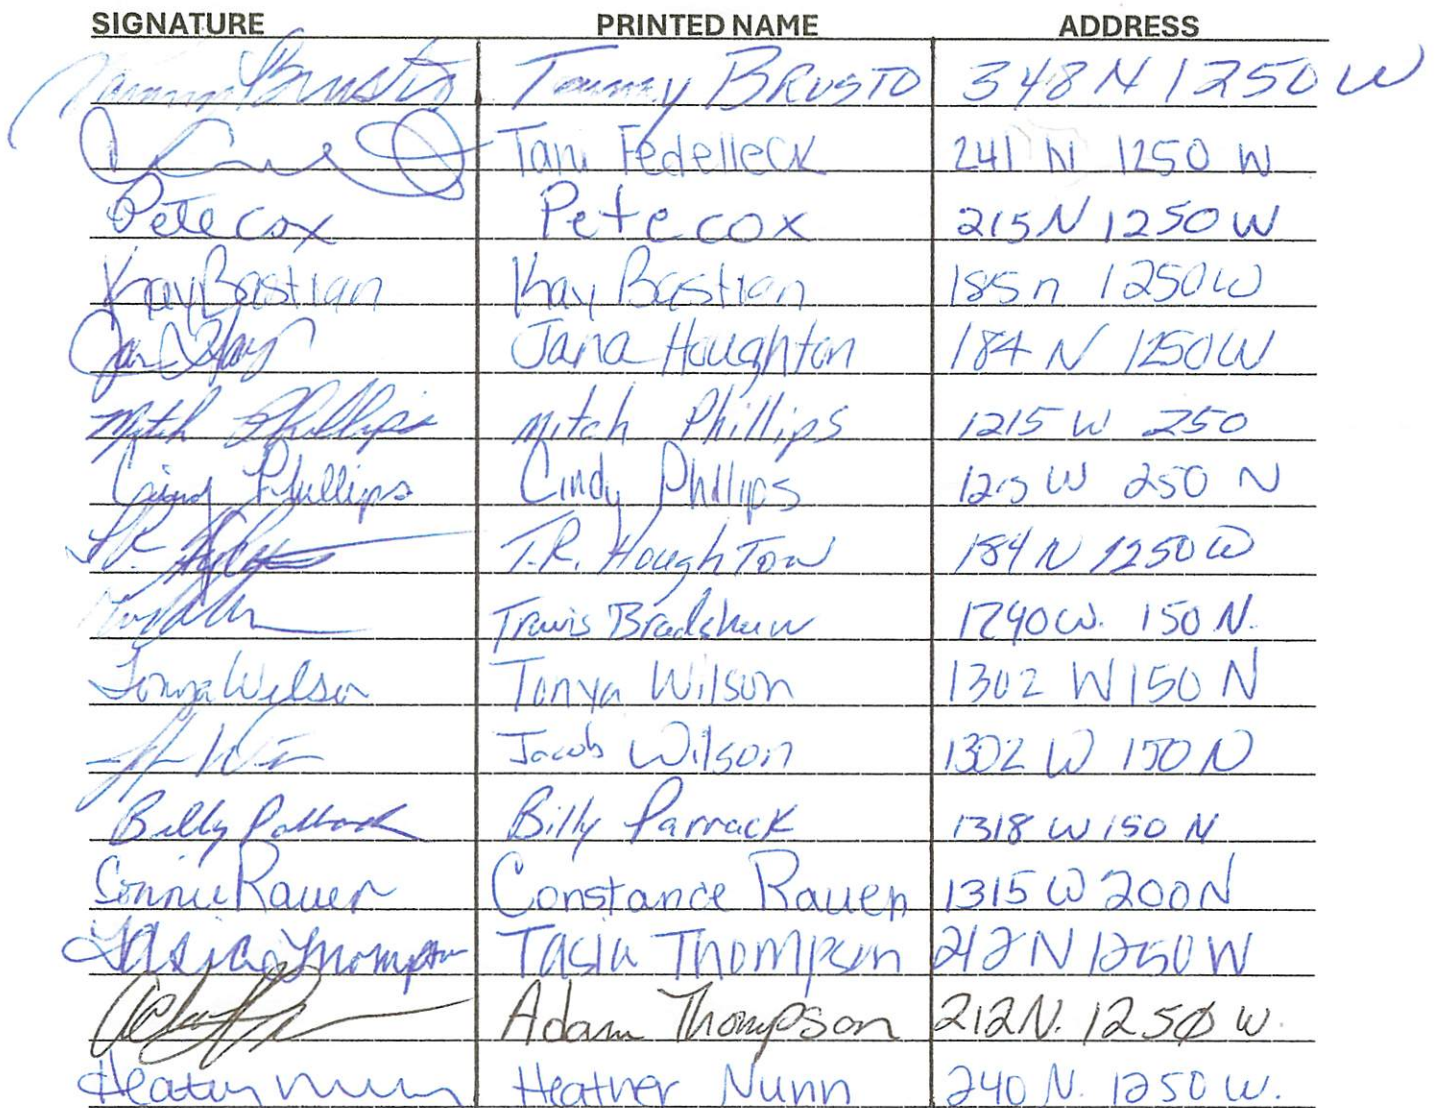 SIGNATURE PRINTED NAME ADDRESS
Brusto Tommy BRUSTO 348 N 1250 W
Tani Fedelleck 241 N 1250 W
Pete cox Pete cox 215 N 1250 W
Kay Bastian Kay Bastian 185 n 1250 W
Jana Houghton 184 N 1250 W
Mitch Phillips mitch Phillips 1215 W 250
Cindy Phillips Cindy Phillips 1215 W 250 N
T.R. T.R. Houghton 184 N 1250 W
Travis Bradshaw 1240 W. 150 N.
Tonya Wilson Tonya Wilson 1302 W 150 N
Jacob Wilson 1302 W 150 N
Billy Parrack Billy Parrack 1318 W 150 N
Connie Rauen Constance Rauen 1315 W 200 N
Tasia Thompson Tasia Thompson 212 N 1250 W
Adam Thompson 212 N. 1250 W.
Heather Nunn Heather Nunn 240 N. 1250 W.